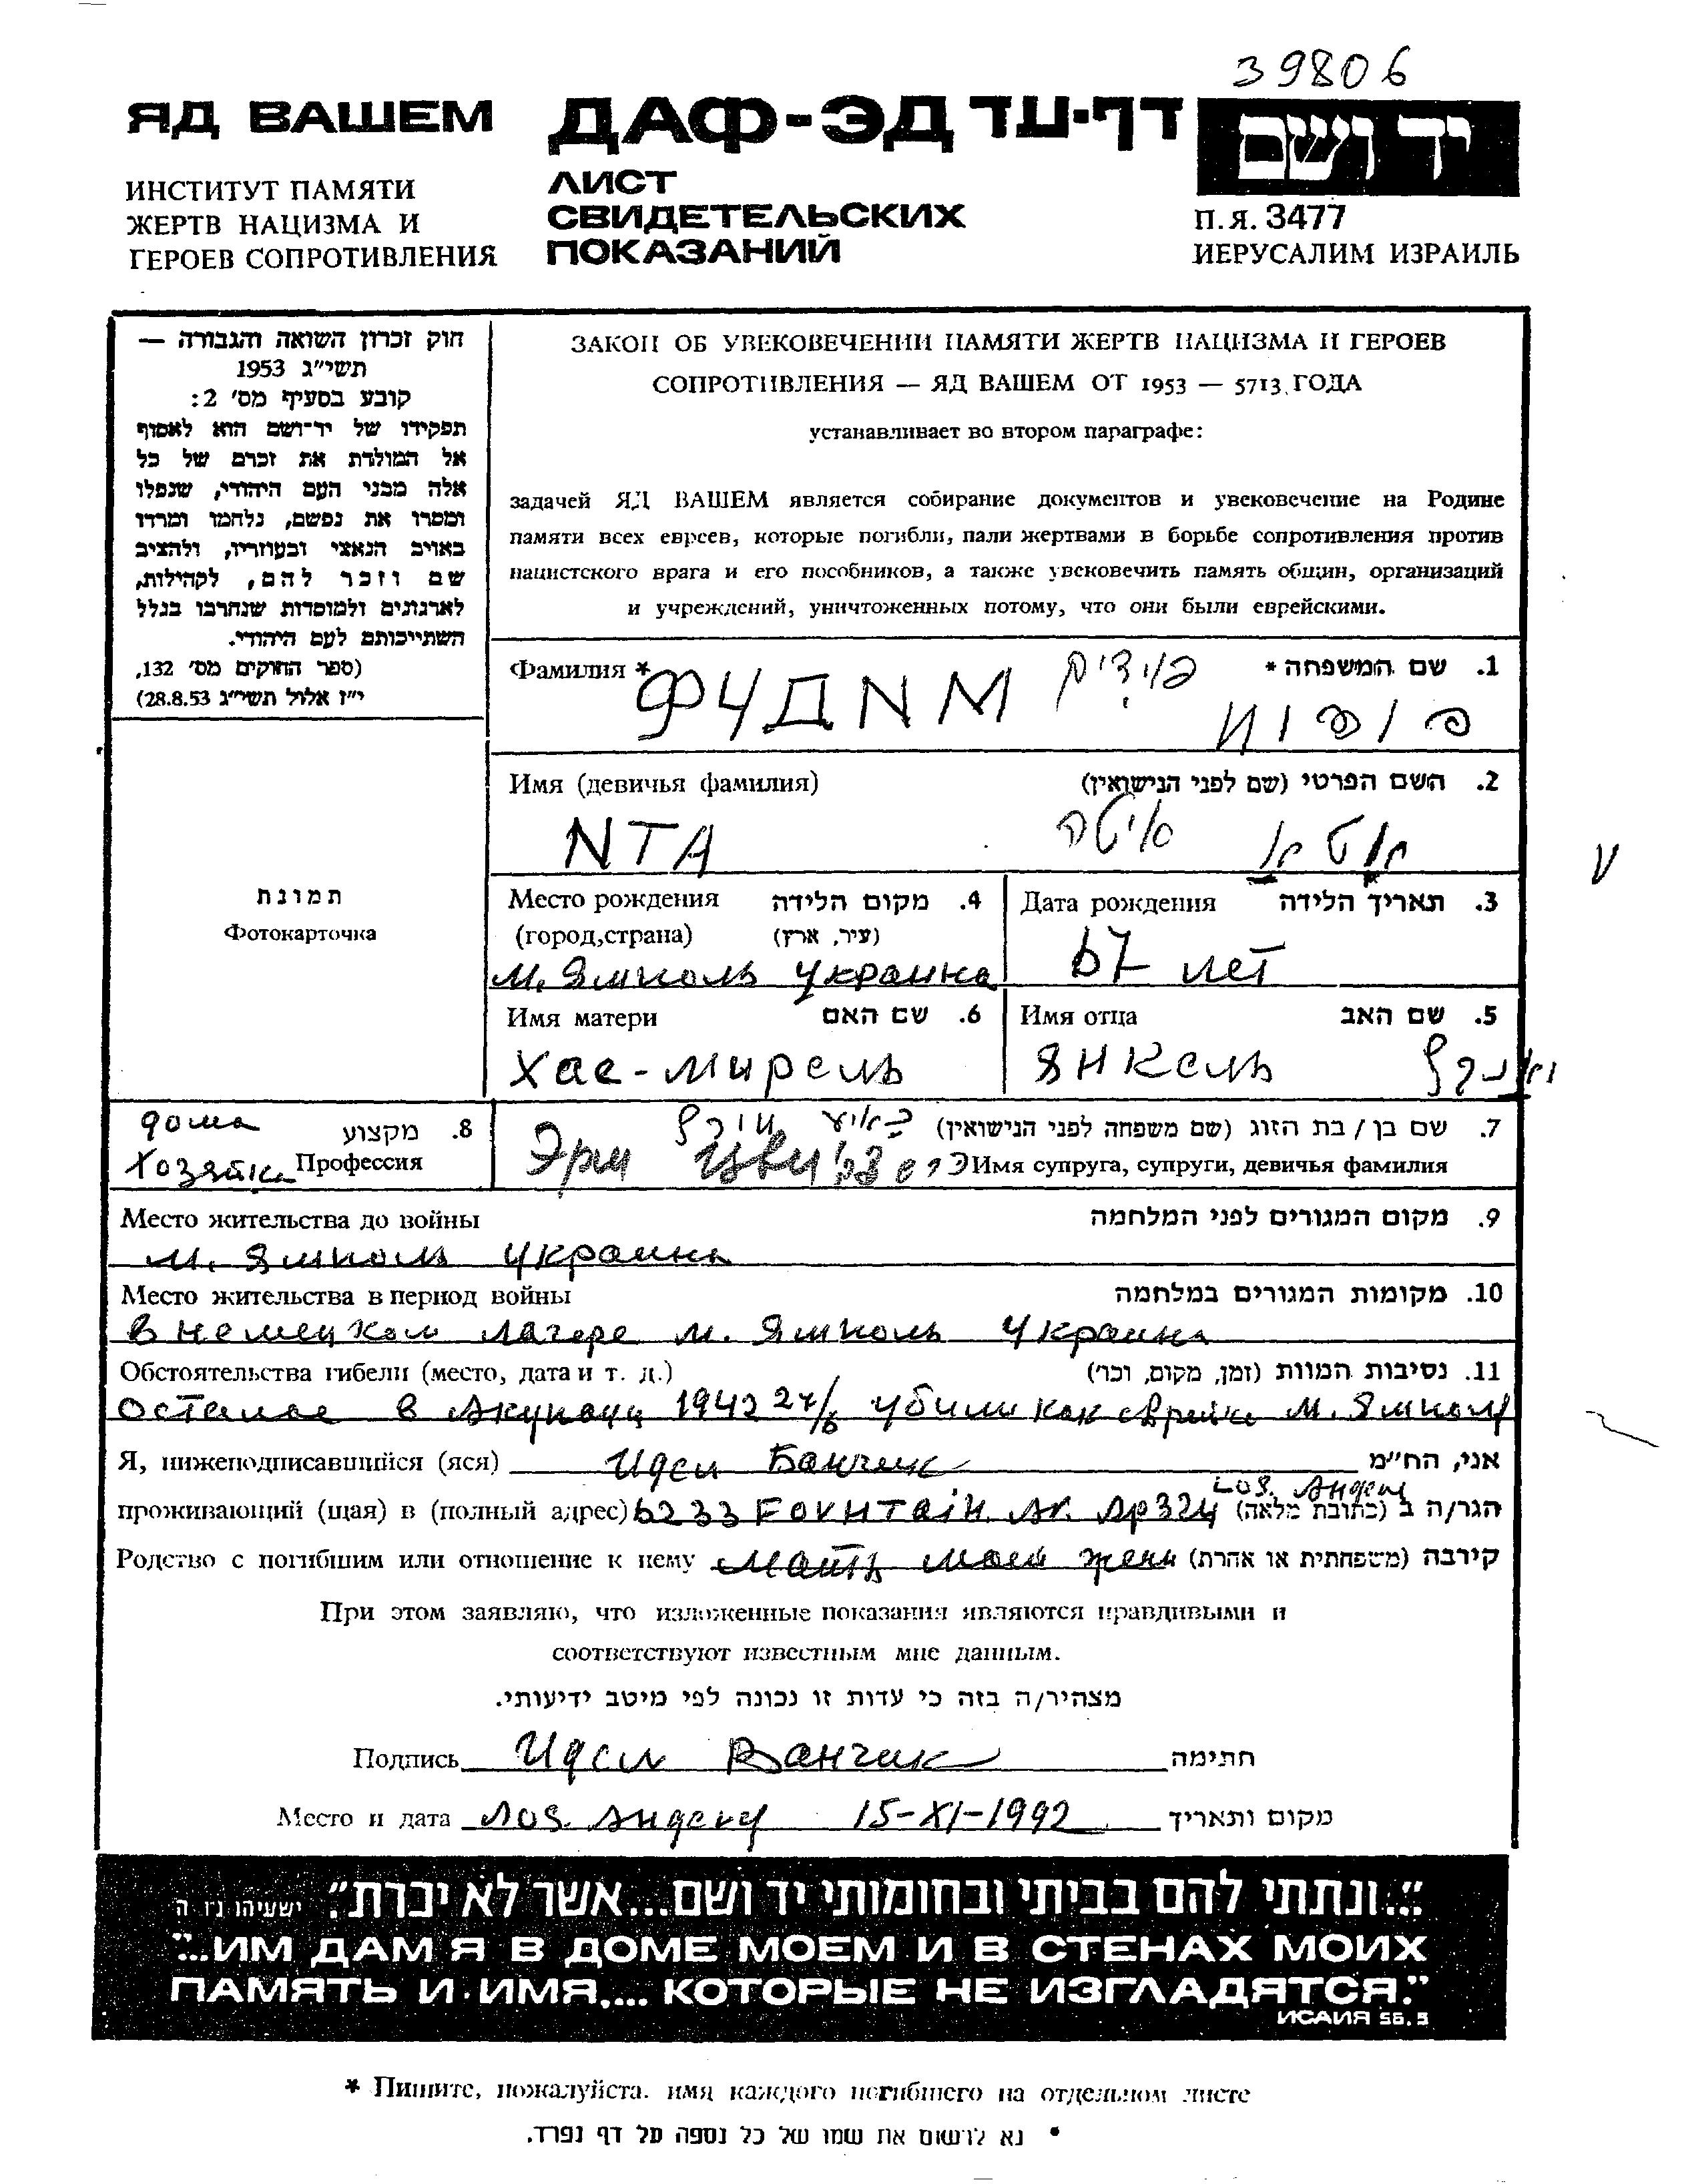 39806
ЯД ВАШЕМ ДАФ-ЭД דף-עד יד ושם
ИНСТИТУТ ПАМЯТИ
ЖЕРТВ НАЦИЗМА И
ГЕРОЕВ СОПРОТИВЛЕНИЯ
ЛИСТ
СВИДЕТЕЛЬСКИХ
ПОКАЗАНИЙ
П.Я. 3477
ИЕРУСАЛИМ ИЗРАИЛЬ
חוק זכרון השואה והגבורה —
תשי״ג 1953
קובע בסעיף מס׳ 2:
תפקידו של יד־ושם הוא לאסוף
אל המולדת את זכרם של כל
אלה מבני העם היהודי, שנפלו
ומסרו את נפשם, נלחמו ומרדו
באויב הנאצי ובעוזריו, ולהציב
שם וזכר להם, לקהילות,
לארגונים ולמוסדות שנחרבו בגלל
השתייכותם לעם היהודי.
(ספר החוקים מס׳ 132,
י״ז אלול תשי״ג 28.8.53)
ЗАКОН ОБ УВЕКОВЕЧЕНИИ ПАМЯТИ ЖЕРТВ НАЦИЗМА И ГЕРОЕВ
СОПРОТИВЛЕНИЯ — ЯД ВАШЕМ ОТ 1953 — 5713 ГОДА
устанавливает во втором параграфе:
задачей ЯД ВАШЕМ является собирание документов и увековечение на Родине
памяти всех евреев, которые погибли, пали жертвами в борьбе сопротивления против
нацистского врага и его пособников, а также увековечить память общин, организаций
и учреждений, уничтоженных потому, что они были еврейскими.
Фамилия * 1. שם המשפחה *
ФУДИМ פודים
2. השם הפרטי (שם לפני הנישואין) Имя (девичья фамилия)
ИТА איטה איטא
תמונת
Фотокарточка
3. תאריך הלידה Дата рождения
67 лет
4. מקום הלידה Место рождения
(עיר, ארץ) (город,страна)
м. Ямполь Украина
5. שם האב Имя отца
Янкель יאנקל
6. שם האם Имя матери
Хае-Мирель
7. שם בן / בת הזוג (שם משפחה לפני הנישואין)
Имя супруга, супруги, девичья фамилия
8. מקצוע Профессия
дома хозяйка
Место жительства до войны 9. מקום המגורים לפני המלחמה
м. Ямполь Украина
Место жительства в период войны 10. מקומות המגורים במלחמה
в немецком лагере м. Ямполь Украина
Обстоятельства гибели (место, дата и т. д.) 11. נסיבות המוות (זמן, מקום, וכו׳)
осталас в Акупацц 1942 27/6 убили как еврейка м. Ямполь
Я, нижеподписавшийся (яся) Идел Банчик אני, הח״מ
Лоs. Анджел
проживающий (щая) в (полный адрес) 6233 FOUHTAiH. Av. Ap 324 הגר/ה ב (כתובת מלאה)
Родство с погибшим или отношение к нему мать моей жены קירבה (משפחתית או אחרת)
При этом заявляю, что изложенные показания являются правдивыми и
соответствуют известным мне данным.
מצהיר/ה בזה כי עדות זו נכונה לפי מיטב ידיעותי.
Подпись Идел Банчик חתימה
Место и дата Лоs. 15-XI-1992 מקום ותאריך
״...ונתתי להם בביתי ובחומותי יד ושם...אשר לא יכרת״. ישעיהו נו ה
"...ИМ ДАМ Я В ДОМЕ МОЕМ И В СТЕНАХ МОИХ
ПАМЯТЬ И ИМЯ,... КОТОРЫЕ НЕ ИЗГЛАДЯТСЯ."
ИСАИЯ 56.5
* Пишите, пожалуйста. имя каждого погибшего на отдельном листе
* נא לרשום את שמו של כל נספה על דף נפרד.